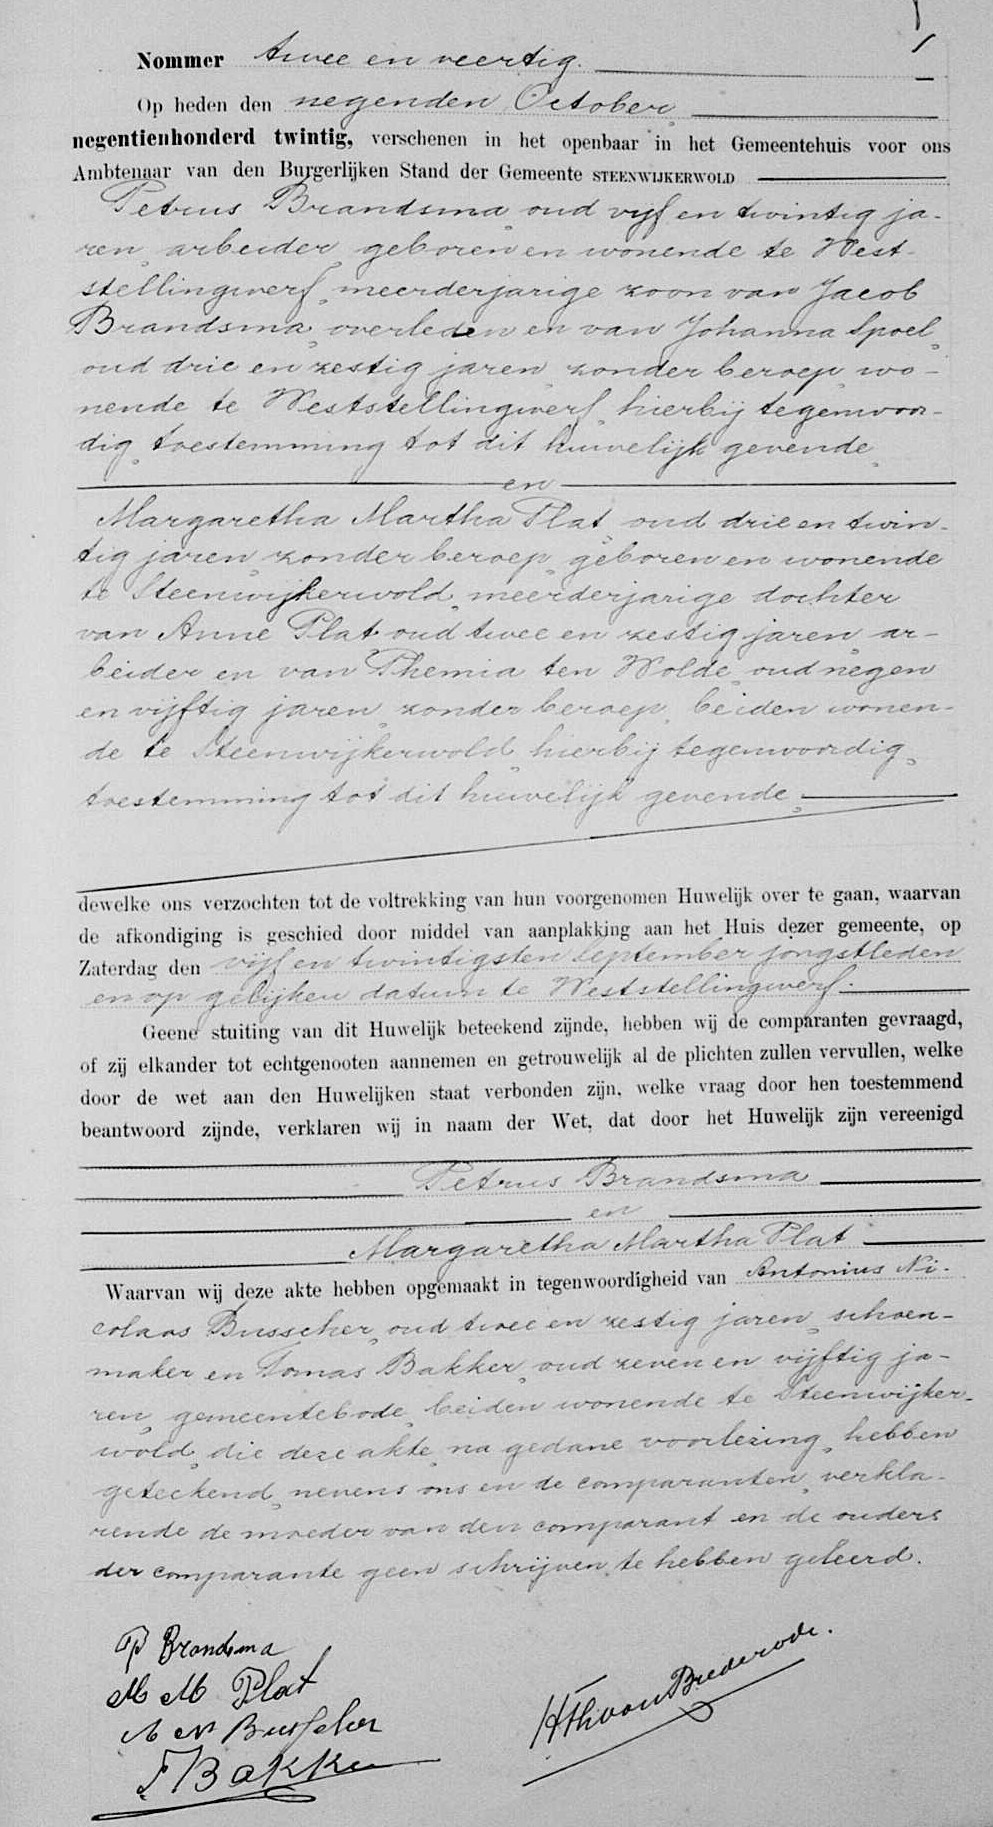 Nommer twee en veertig.
Op heden den negenden October,
negentienhonderd twintig, verschenen in het openbaar in het Gemeentehuis voor ons
Ambtenaar van den Burgerlijken Stand der Gemeente STEENWIJKERWOLD
Petrus Brandsma, oud vijf en twintig ja-
ren, arbeider, geboren en wonende te West-
stellingwerf, meerderjarige zoon van Jacob
Brandsma, overleden en van Johanna Spoel,
oud drie en zestig jaren, zonder beroep, wo-
nende te Weststellingwerf, hierbij tegenwoor-
dig, toestemming tot dit huwelijk gevende,
en
Margaretha Martha Plat, oud drie en twin-
tig jaren, zonder beroep, geboren en wonende
te Steenwijkerwold, meerderjarige dochter
van Anne Plat, oud twee en zestig jaren, ar-
beider en van Phemia ten Wolde, oud negen
en vijftig jaren, zonder beroep, beiden wonen-
de te Steenwijkerwold, hierbij tegenwoordig,
toestemming tot dit huwelijk gevende,
dewelke ons verzochten tot de voltrekking van hun voorgenomen Huwelijk over te gaan, waarvan
de afkondiging is geschied door middel van aanplakking aan het Huis dezer gemeente, op
Zaterdag den vijf en twintigsten September jongstleden
en op gelijken datum te Weststellingwerf.
Geene stuiting van dit Huwelijk beteekend zijnde, hebben wij de comparanten gevraagd,
of zij elkander tot echtgenooten aannemen en getrouwelijk al de plichten zullen vervullen, welke
door de wet aan den Huwelijken staat verbonden zijn, welke vraag door hen toestemmend
beantwoord zijnde, verklaren wij in naam der Wet, dat door het Huwelijk zijn vereenigd
Petrus Brandsma
en
Margaretha Martha Plat
Waarvan wij deze akte hebben opgemaakt in tegenwoordigheid van Antonius Ni-
colaas Busscher, oud twee en zestig jaren, schoen-
maker en Tomas Bakker, oud zeven en vijftig ja-
ren, gemeentebode, beiden wonende te Steenwijker-
wold, die deze akte, na gedane voorlezing, hebben
geteekend, nevens ons en de comparanten, verkla-
rende de moeder van den comparant en de ouders
der comparante geen schrijven te hebben geleerd.
P Brandsma
M M Plat
A N Busscher
T Bakker
HThvanBrederode.